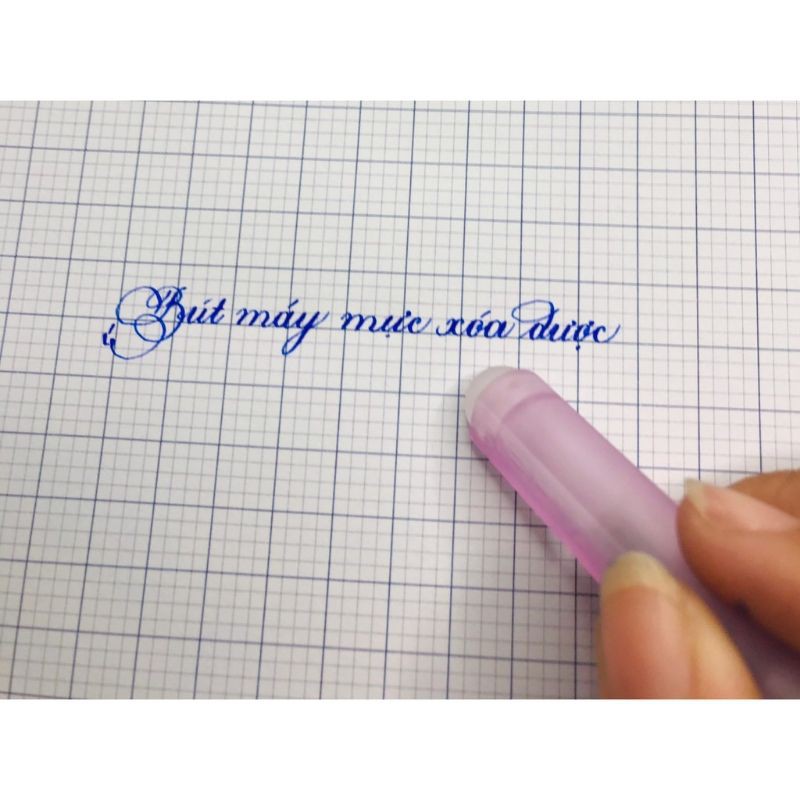 Bút máy mực xóa được